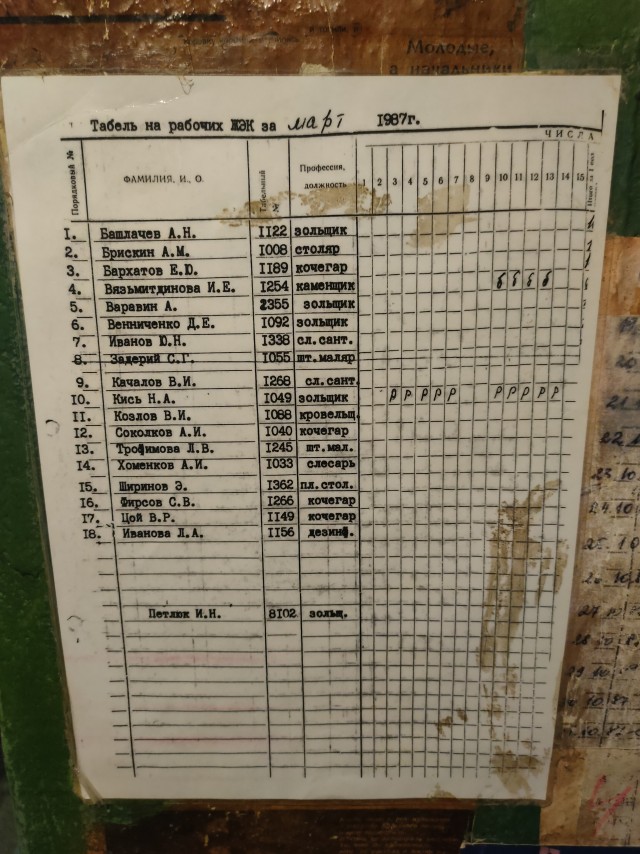 Молодые,
а начальники
Табель на рабочих ЖЭК за март 1987г.
ЧИСЛА
Порядковый № ФАМИЛИЯ, И., О. Табельный № Профессия, должность 1 2 3 4 5 6 7 8 9 10 11 12 13 14 15
1. Башлачев А.Н. 1122 зольщик
2. Брискин А.М. 1008 столяр
3. Бархатов Е.Ю. 1189 кочегар
4. Вязьмитдинова И.Е. 1254 каменщик б б б б
5. Варавин А. 2355 зольщик
6. Венниченко Д.Е. 1092 зольщик
7. Иванов Ю.Н. 1338 сл.сант.
8. Задерий С.Г. 1055 шт.маляр
9. Качалов В.И. 1268 сл.сант.
10. Кись Н.А. 1049 зольщик р р р р р р р р р р
11. Козлов В.И. 1088 кровельщ.
12. Соколков А.И. 1040 кочегар
13. Трофимова Л.В. 1245 шт.мал.
14. Хоменков А.И. 1033 слесарь
15. Ширинов Э. 1362 пл.стол.
16. Фирсов С.В. 1266 кочегар
17. Цой В.Р. 1149 кочегар
18. Иванова Л.А. 1156 дезинф.
Петлюк И.Н. 8102 зольщ.